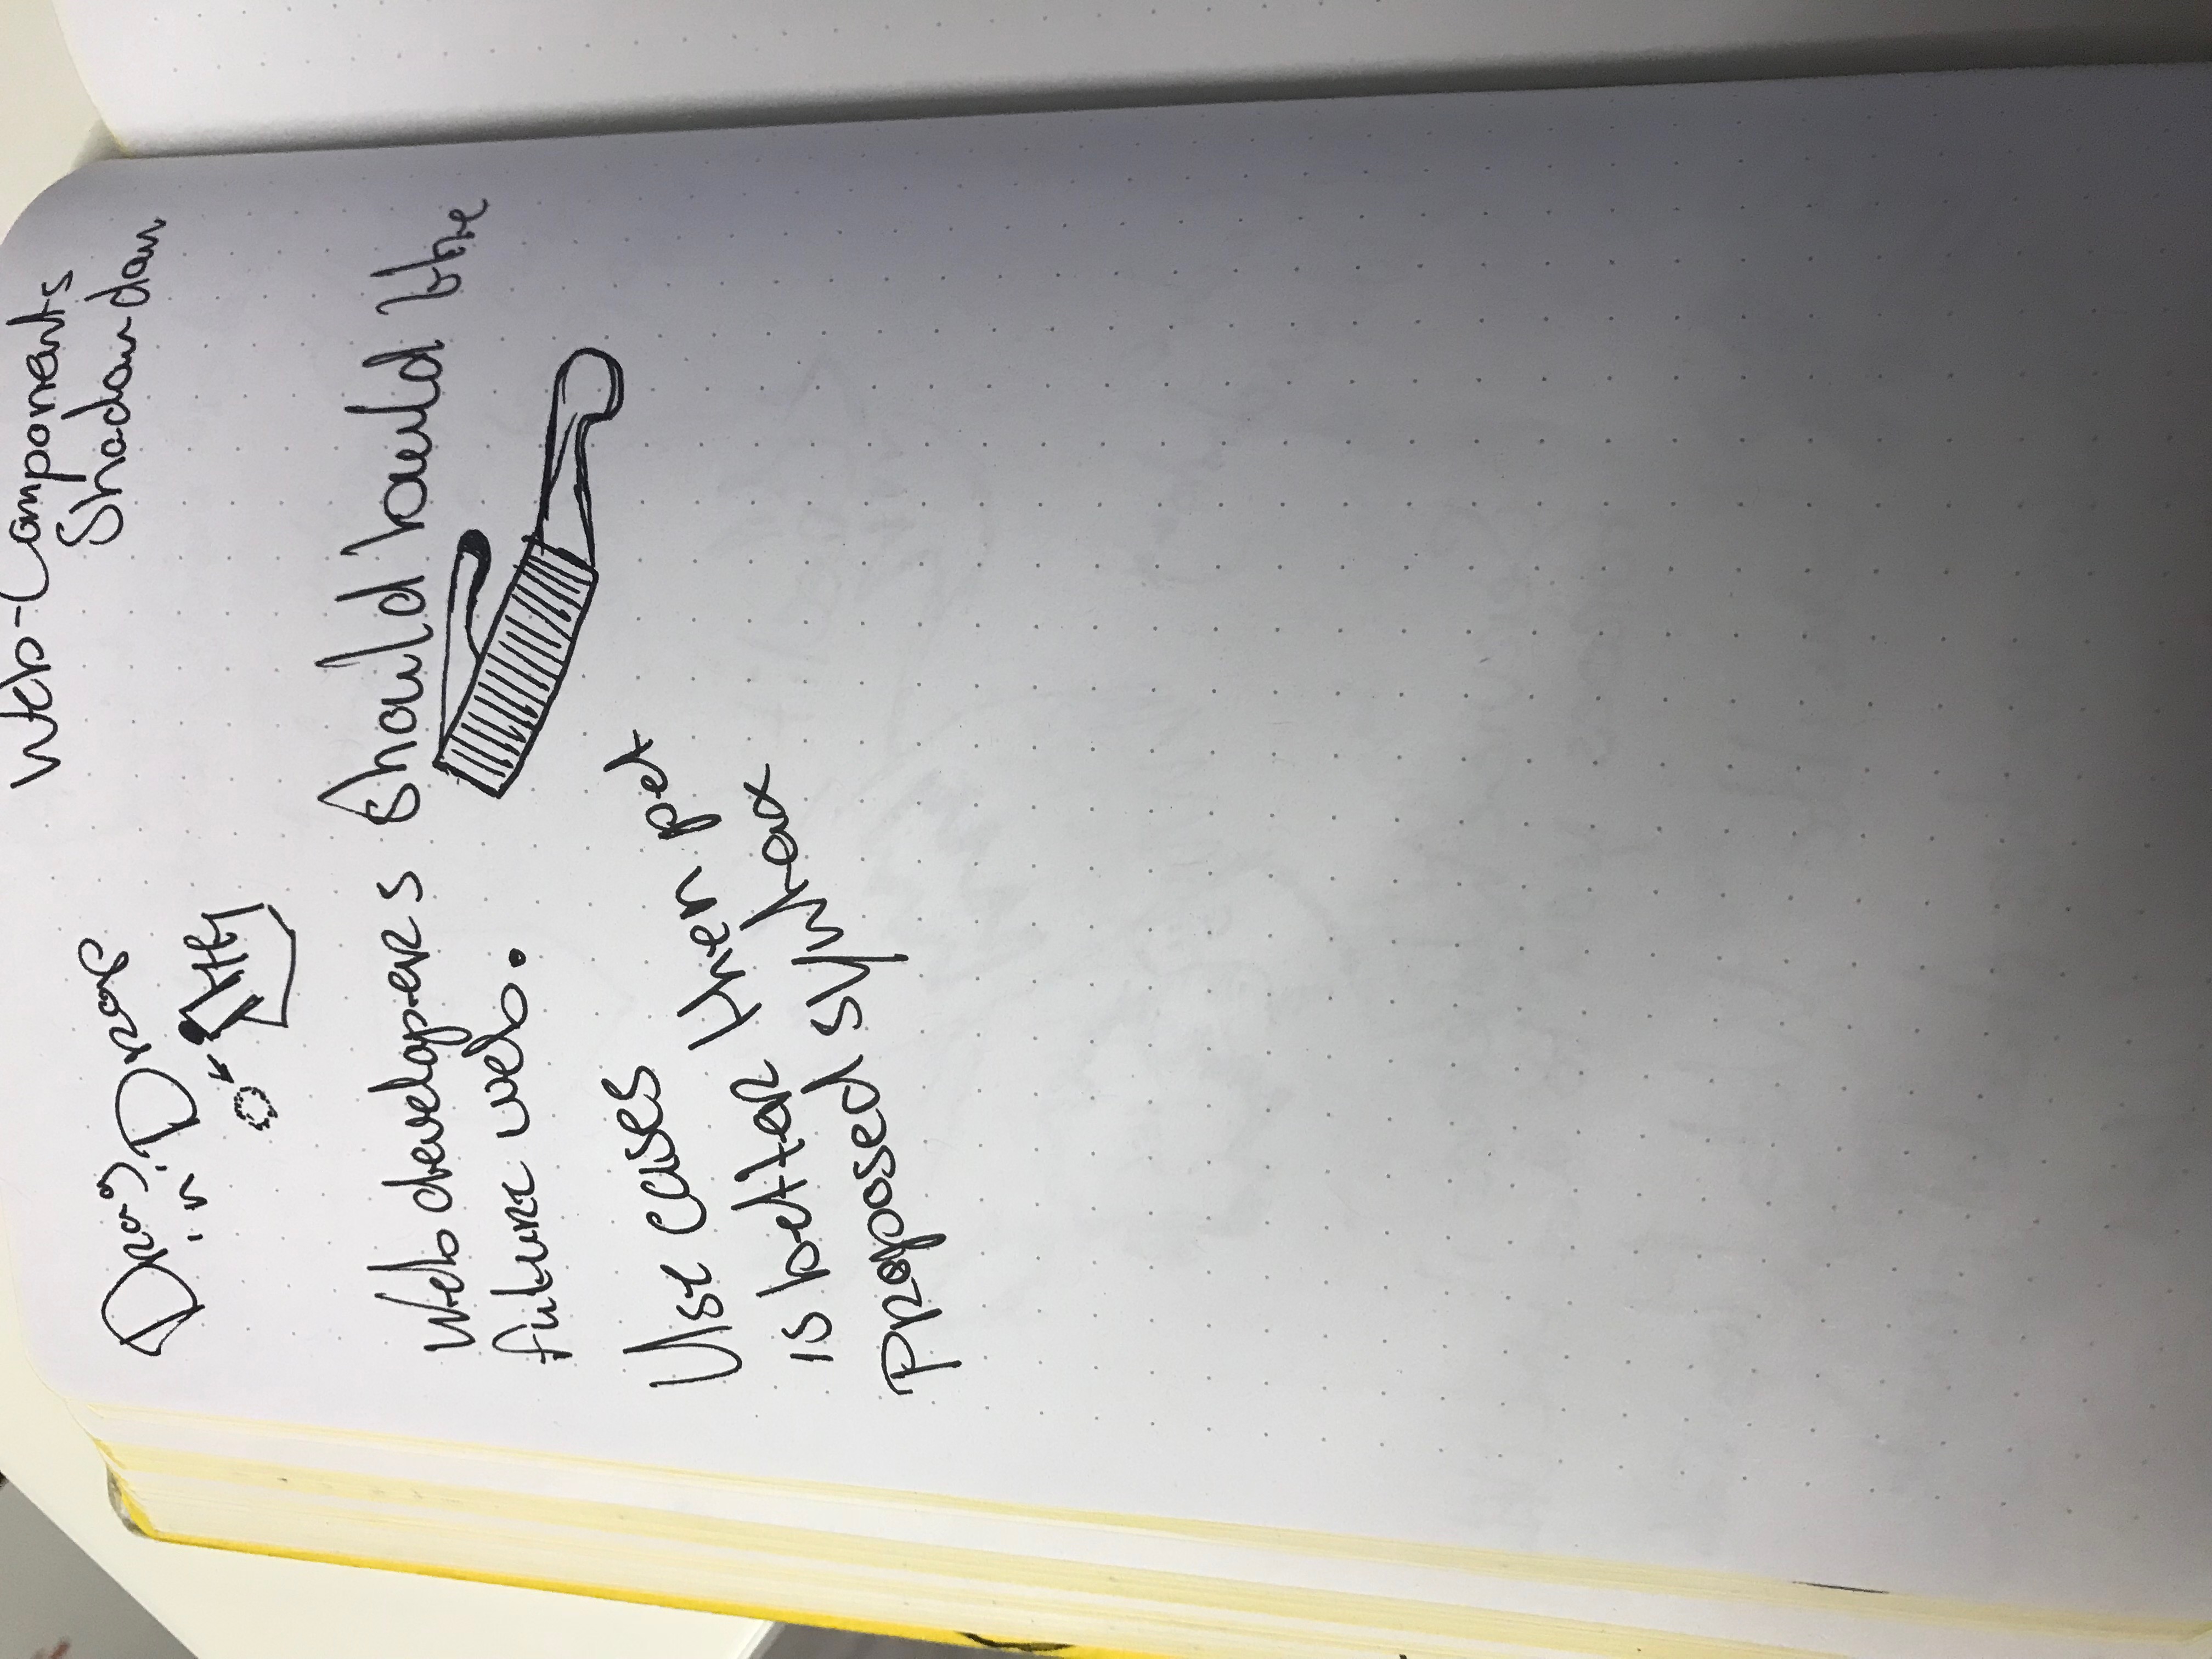 Drag
'n' Drop
Web-Components
Shadow dom
Web developers should build the
future web.
Use cases
is better then pet
Proposed syntax